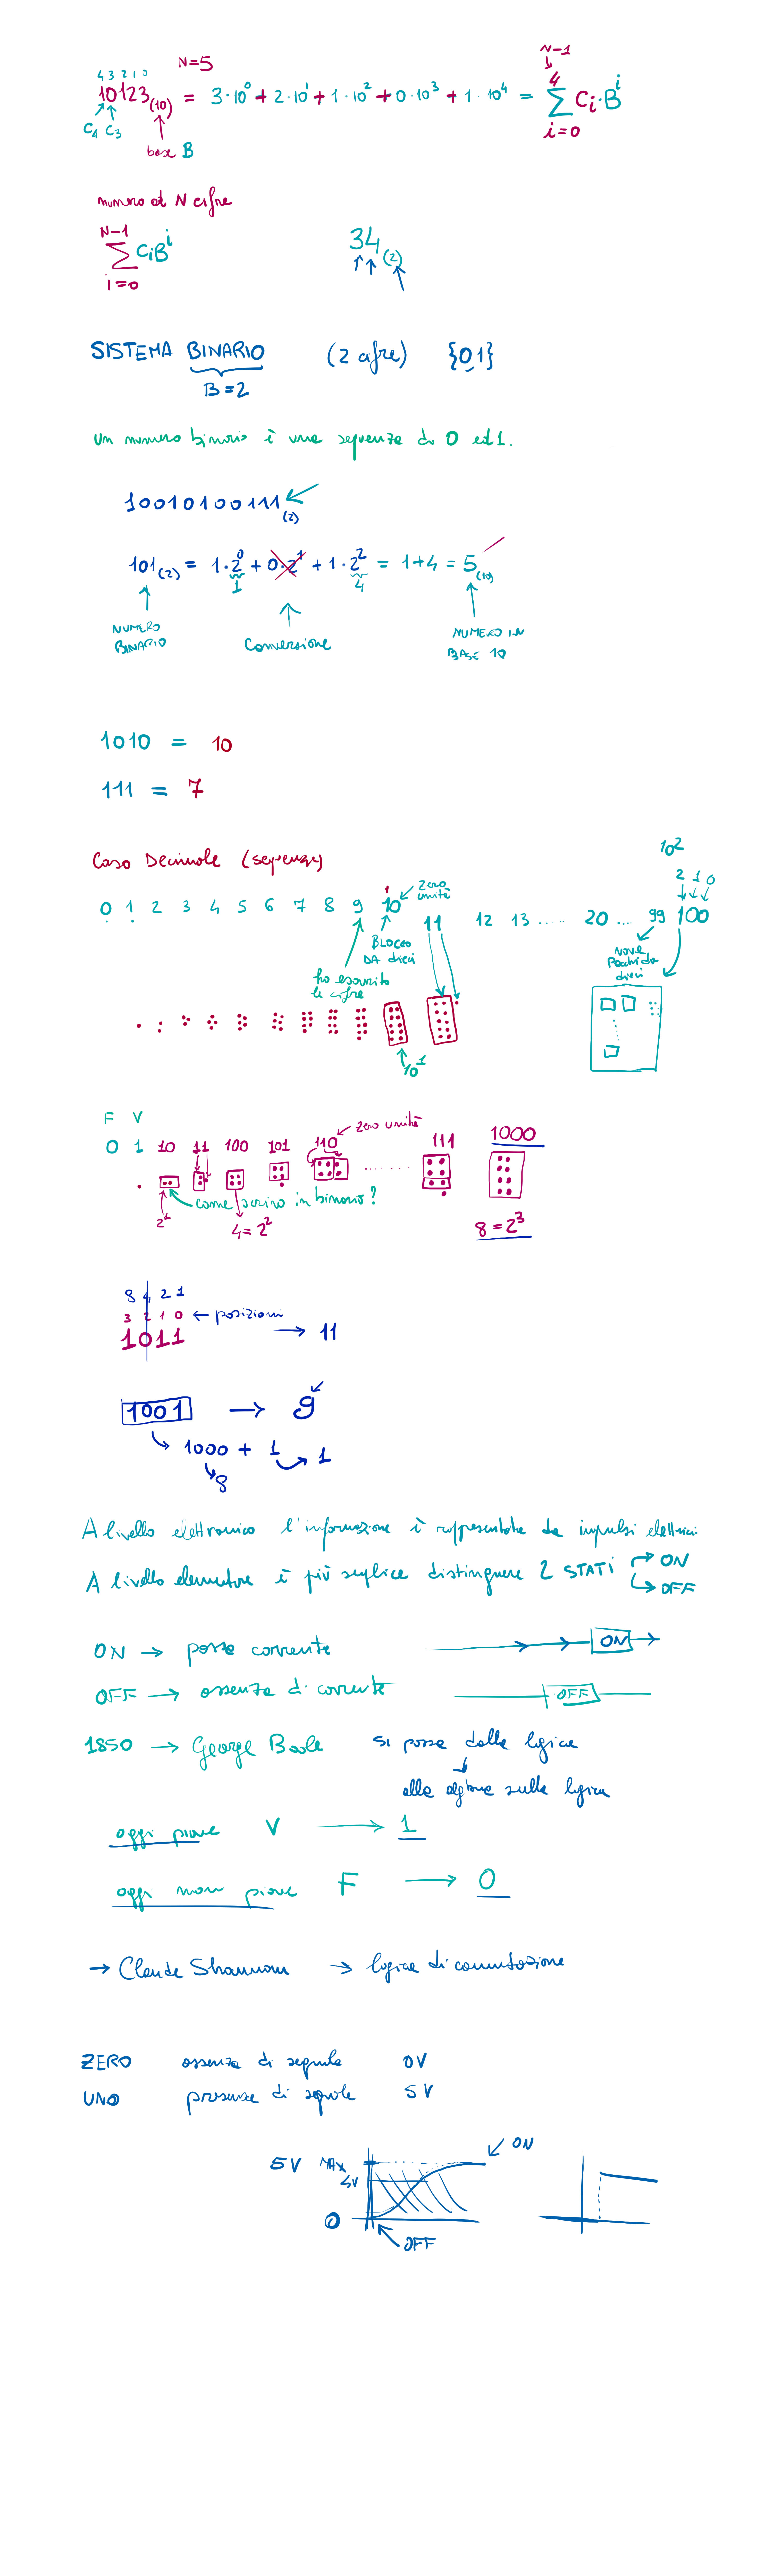 N=5
N-1
4 3 2 1 0
10123(10) = 3·10⁰ + 2·10¹ + 1·10² + 0·10³ + 1·10⁴ = ∑ Ci·Bⁱ
4
i=0
C4 C3
base B
numero di N cifre
N-1
∑ CiBⁱ
i=0
34(2)
SISTEMA BINARIO (2 cifre) {0,1}
B=2
Un numero binario è una sequenza di 0 ed 1.
10010100111(2)
101(2) = 1·2⁰ + 0·2¹ + 1·2² = 1+4 = 5(10)
1 4
NUMERO BINARIO
Conversione
NUMERO IN BASE 10
1010 = 10
111 = 7
Caso Decimale (sequenza)
10²
2 1 0
0 1 2 3 4 5 6 7 8 9 10 11 12 13 ..... 20 .... 99 100
1
zero unità
BLOCCO DA dieci
ho esaurito le cifre
nove pacchi da dieci
10¹
F V
0 1 10 11 100 101 110 ....... 111 1000
zero unità
come scrivo in binario?
2¹
4=2²
8=2³
8 4 2 1
3 2 1 0 ← posizioni
1011 → 11
1001 → 9
1000 + 1 → 1
8
A livello elettronico l'informazione è rappresentata da impulsi elettrici
A livello elementare è più semplice distinguere 2 STATI → ON
→ OFF
ON → passa corrente ON
OFF → assenza di corrente OFF
1850 → George Boole si passa dalla logica
alla algebra sulla logica
oggi piove V → 1
oggi non piove F → 0
→ Claude Shannon → logica di commutazione
ZERO assenza di segnale 0V
UNO presenza di segnale 5V
ON
5V MAX
4V
0
OFF